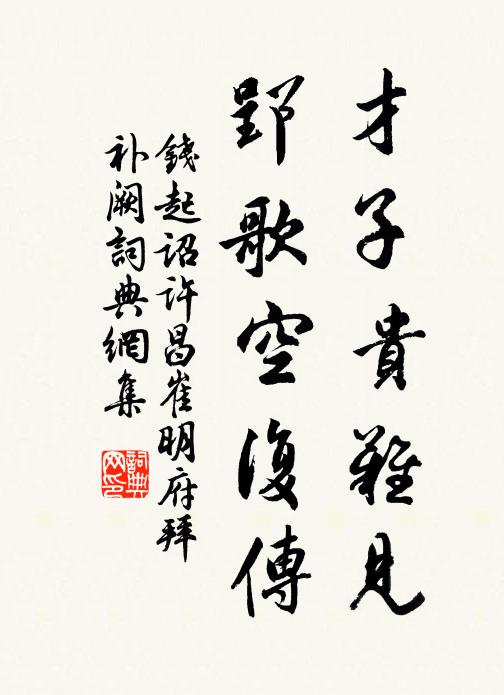 才子貴難見
郢歌空復傳
錢起詔許昌崔明府拜
补阙詞典網集
詞典网印